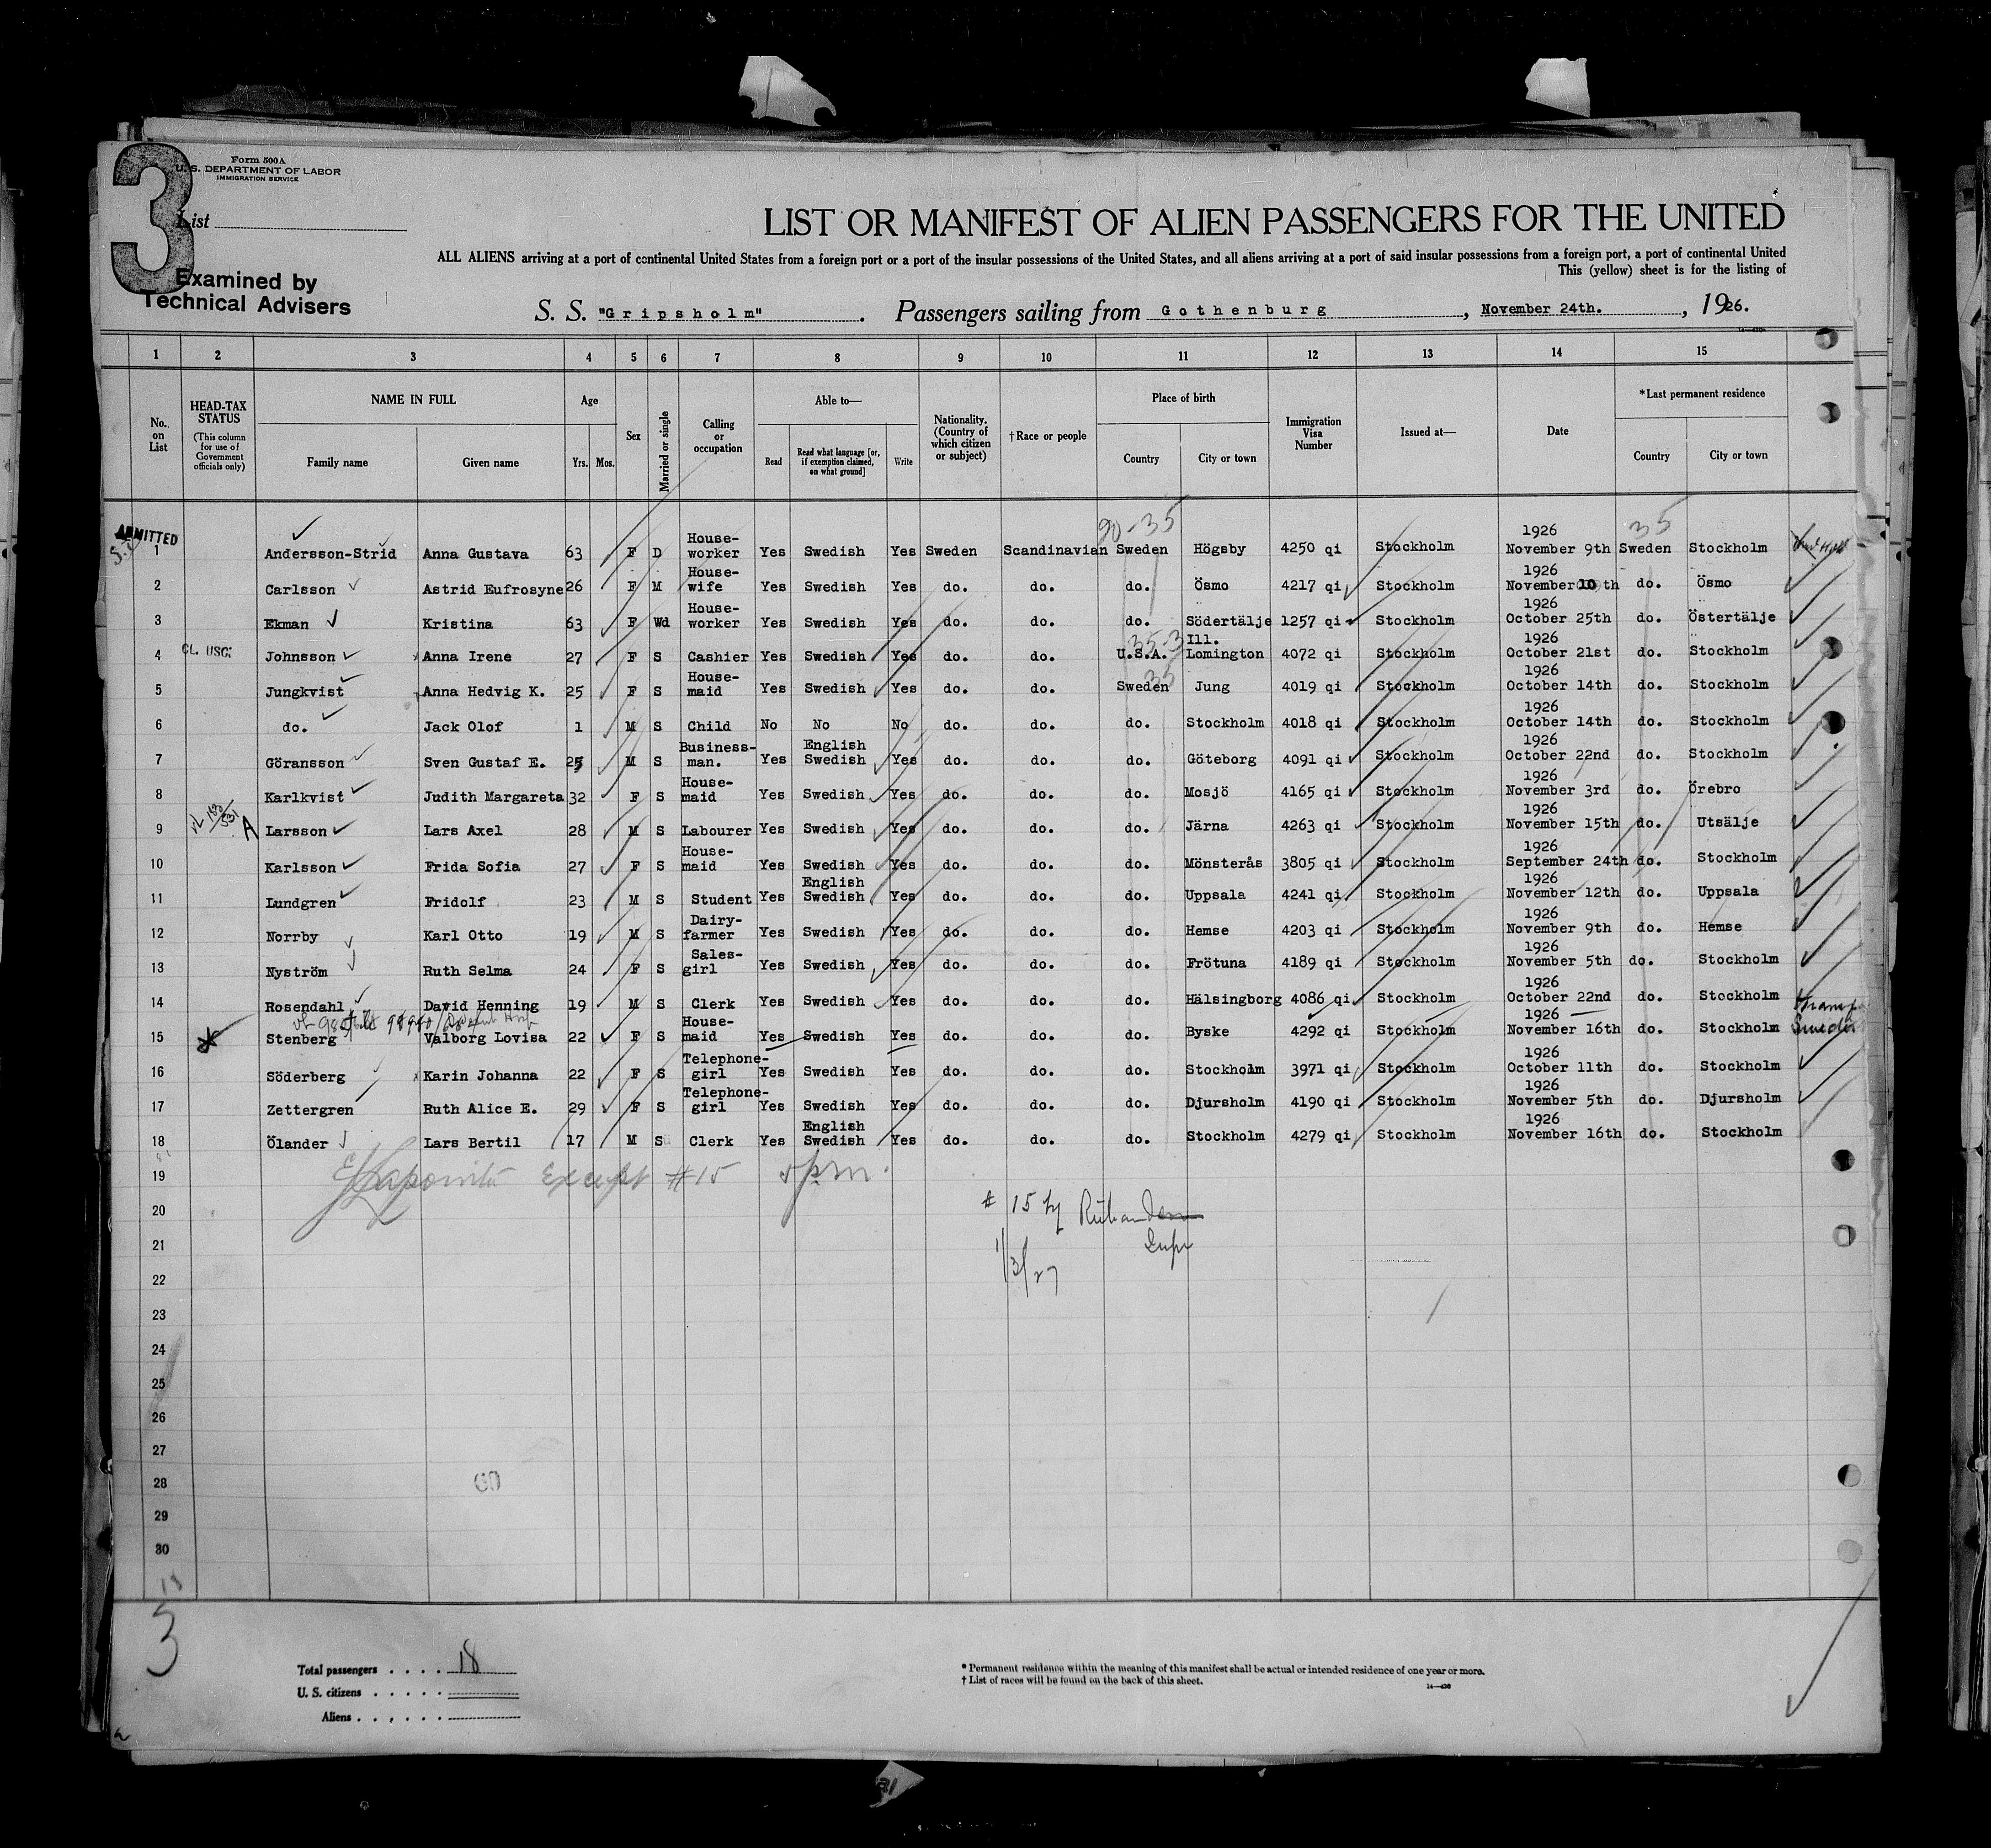 Form 500A
U. S. DEPARTMENT OF LABOR
IMMIGRATION SERVICE
3
List
Examined by
Technical Advisers
LIST OR MANIFEST OF ALIEN PASSENGERS FOR THE UNITED
ALL ALIENS arriving at a port of continental United States from a foreign port or a port of the insular possessions of the United States, and all aliens arriving at a port of said insular possessions from a foreign port, a port of continental United
This (yellow) sheet is for the listing of
S. S. "Gripsholm". Passengers sailing from Gothenburg, November 24th., 1926.
1 2 3 4 5 6 7 8 9 10 11 12 13 14 15
No. on List
HEAD-TAX STATUS (This column for use of Government officials only)
NAME IN FULL Family name Given name
Age Yrs. Mos.
Sex
Married or single
Calling or occupation
Able to— Read Read what language [or, if exemption claimed, on what ground] Write
Nationality. (Country of which citizen or subject)
†Race or people
Place of birth Country City or town
Immigration Visa Number
Issued at—
Date
*Last permanent residence Country City or town
90-35 35
ADMITTED
1 Andersson-Strid Anna Gustava 63 F D House-worker Yes Swedish Yes Sweden Scandinavian Sweden Högsby 4250 qi Stockholm 1926 November 9th Sweden Stockholm
2 Carlsson Astrid Eufrosyne 26 F M House-wife Yes Swedish Yes do. do. do. Ösmo 4217 qi Stockholm 1926 November 10 th do. Ösmo
3 Ekman Kristina 63 F Wd House-worker Yes Swedish Yes do. do. do. Södertälje 1257 qi Stockholm 1926 October 25th do. Östertälje
4 CL. USC. Johnsson Anna Irene 27 F S Cashier Yes Swedish Yes do. do. U.S.A. Ill. Lomington 4072 qi Stockholm 1926 October 21st do. Stockholm
5 Jungkvist Anna Hedvig K. 25 F S House-maid Yes Swedish Yes do. do. Sweden Jung 4019 qi Stockholm 1926 October 14th do. Stockholm
6 do. Jack Olof 1 M S Child No No No do. do. do. Stockholm 4018 qi Stockholm 1926 October 14th do. Stockholm
7 Göransson Sven Gustaf E. 25 M S Business-man. Yes English Swedish Yes do. do. do. Göteborg 4091 qi Stockholm 1926 October 22nd do. Stockholm
8 Karlkvist Judith Margareta 32 F S House-maid Yes Swedish Yes do. do. do. Mosjö 4165 qi Stockholm 1926 November 3rd do. Örebro
9 A Larsson Lars Axel 28 M S Labourer Yes Swedish Yes do. do. do. Järna 4263 qi Stockholm 1926 November 15th do. Utsälje
10 Karlsson Frida Sofia 27 F S House-maid Yes Swedish Yes do. do. do. Mönsterås 3805 qi Stockholm 1926 September 24th do. Stockholm
11 Lundgren Fridolf 23 M S Student Yes English Swedish Yes do. do. do. Uppsala 4241 qi Stockholm 1926 November 12th do. Uppsala
12 Norrby Karl Otto 19 M S Dairy-farmer Yes Swedish Yes do. do. do. Hemse 4203 qi Stockholm 1926 November 9th do. Hemse
13 Nyström Ruth Selma 24 F S Sales-girl Yes Swedish Yes do. do. do. Frötuna 4189 qi Stockholm 1926 November 5th do. Stockholm
14 Rosendahl David Henning 19 M S Clerk Yes Swedish Yes do. do. do. Hälsingborg 4086 qi Stockholm 1926 October 22nd do. Stockholm
15 Stenberg Valborg Lovisa 22 F S House-maid Yes Swedish Yes do. do. do. Byske 4292 qi Stockholm 1926 November 16th do. Stockholm
16 Söderberg Karin Johanna 22 F S Telephone-girl Yes Swedish Yes do. do. do. Stockholm 3971 qi Stockholm 1926 October 11th do. Stockholm
17 Zettergren Ruth Alice E. 29 F S Telephone-girl Yes Swedish Yes do. do. do. Djursholm 4190 qi Stockholm 1926 November 5th do. Djursholm
18 Ölander Lars Bertil 17 M S Clerk Yes English Swedish Yes do. do. do. Stockholm 4279 qi Stockholm 1926 November 16th do. Stockholm
19 Except #15
20 # 15 by
21
22 1/3/27
23
24
25
26
27
28
29
30
3
Total passengers . . . . 18
U. S. citizens . . . . .
Aliens . . . . . .
* Permanent residence within the meaning of this manifest shall be actual or intended residence of one year or more.
† List of races will be found on the back of this sheet.